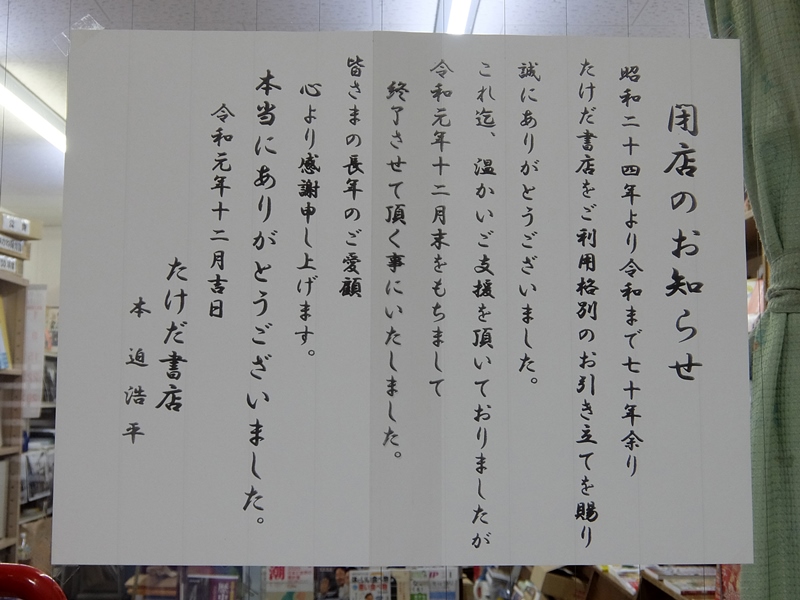 閉店のお知らせ
昭和二十四年より令和まで七十年余り
たけだ書店をご利用格別のお引き立てを賜り
誠にありがとうございました。
これ迄、温かいご支援を頂いておりましたが
令和元年十二月末をもちまして
終了させて頂く事にいたしました。
皆さまの長年のご愛顧
心より感謝申し上げます。
本当にありがとうございました。
令和元年十二月吉日
たけだ書店
本迫浩平